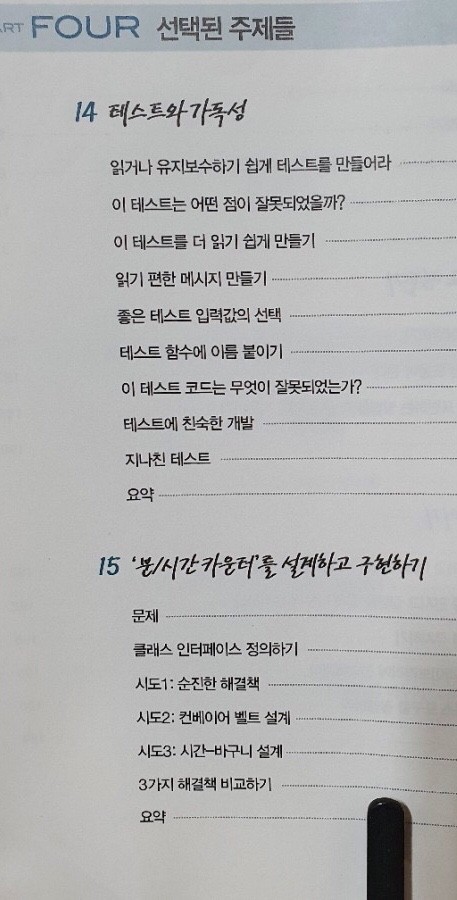 ART FOUR 선택된 주제들
14 테스트와 가독성
읽거나 유지보수하기 쉽게 테스트를 만들어라
이 테스트는 어떤 점이 잘못되었을까?
이 테스트를 더 읽기 쉽게 만들기
읽기 편한 메시지 만들기
좋은 테스트 입력값의 선택
테스트 함수에 이름 붙이기
이 테스트 코드는 무엇이 잘못되었는가?
테스트에 친숙한 개발
지나친 테스트
요약
15 '분/시간 카운터'를 설계하고 구현하기
문제
클래스 인터페이스 정의하기
시도1: 순진한 해결책
시도2: 컨베이어 벨트 설계
시도3: 시간-바구니 설계
3가지 해결책 비교하기
요약